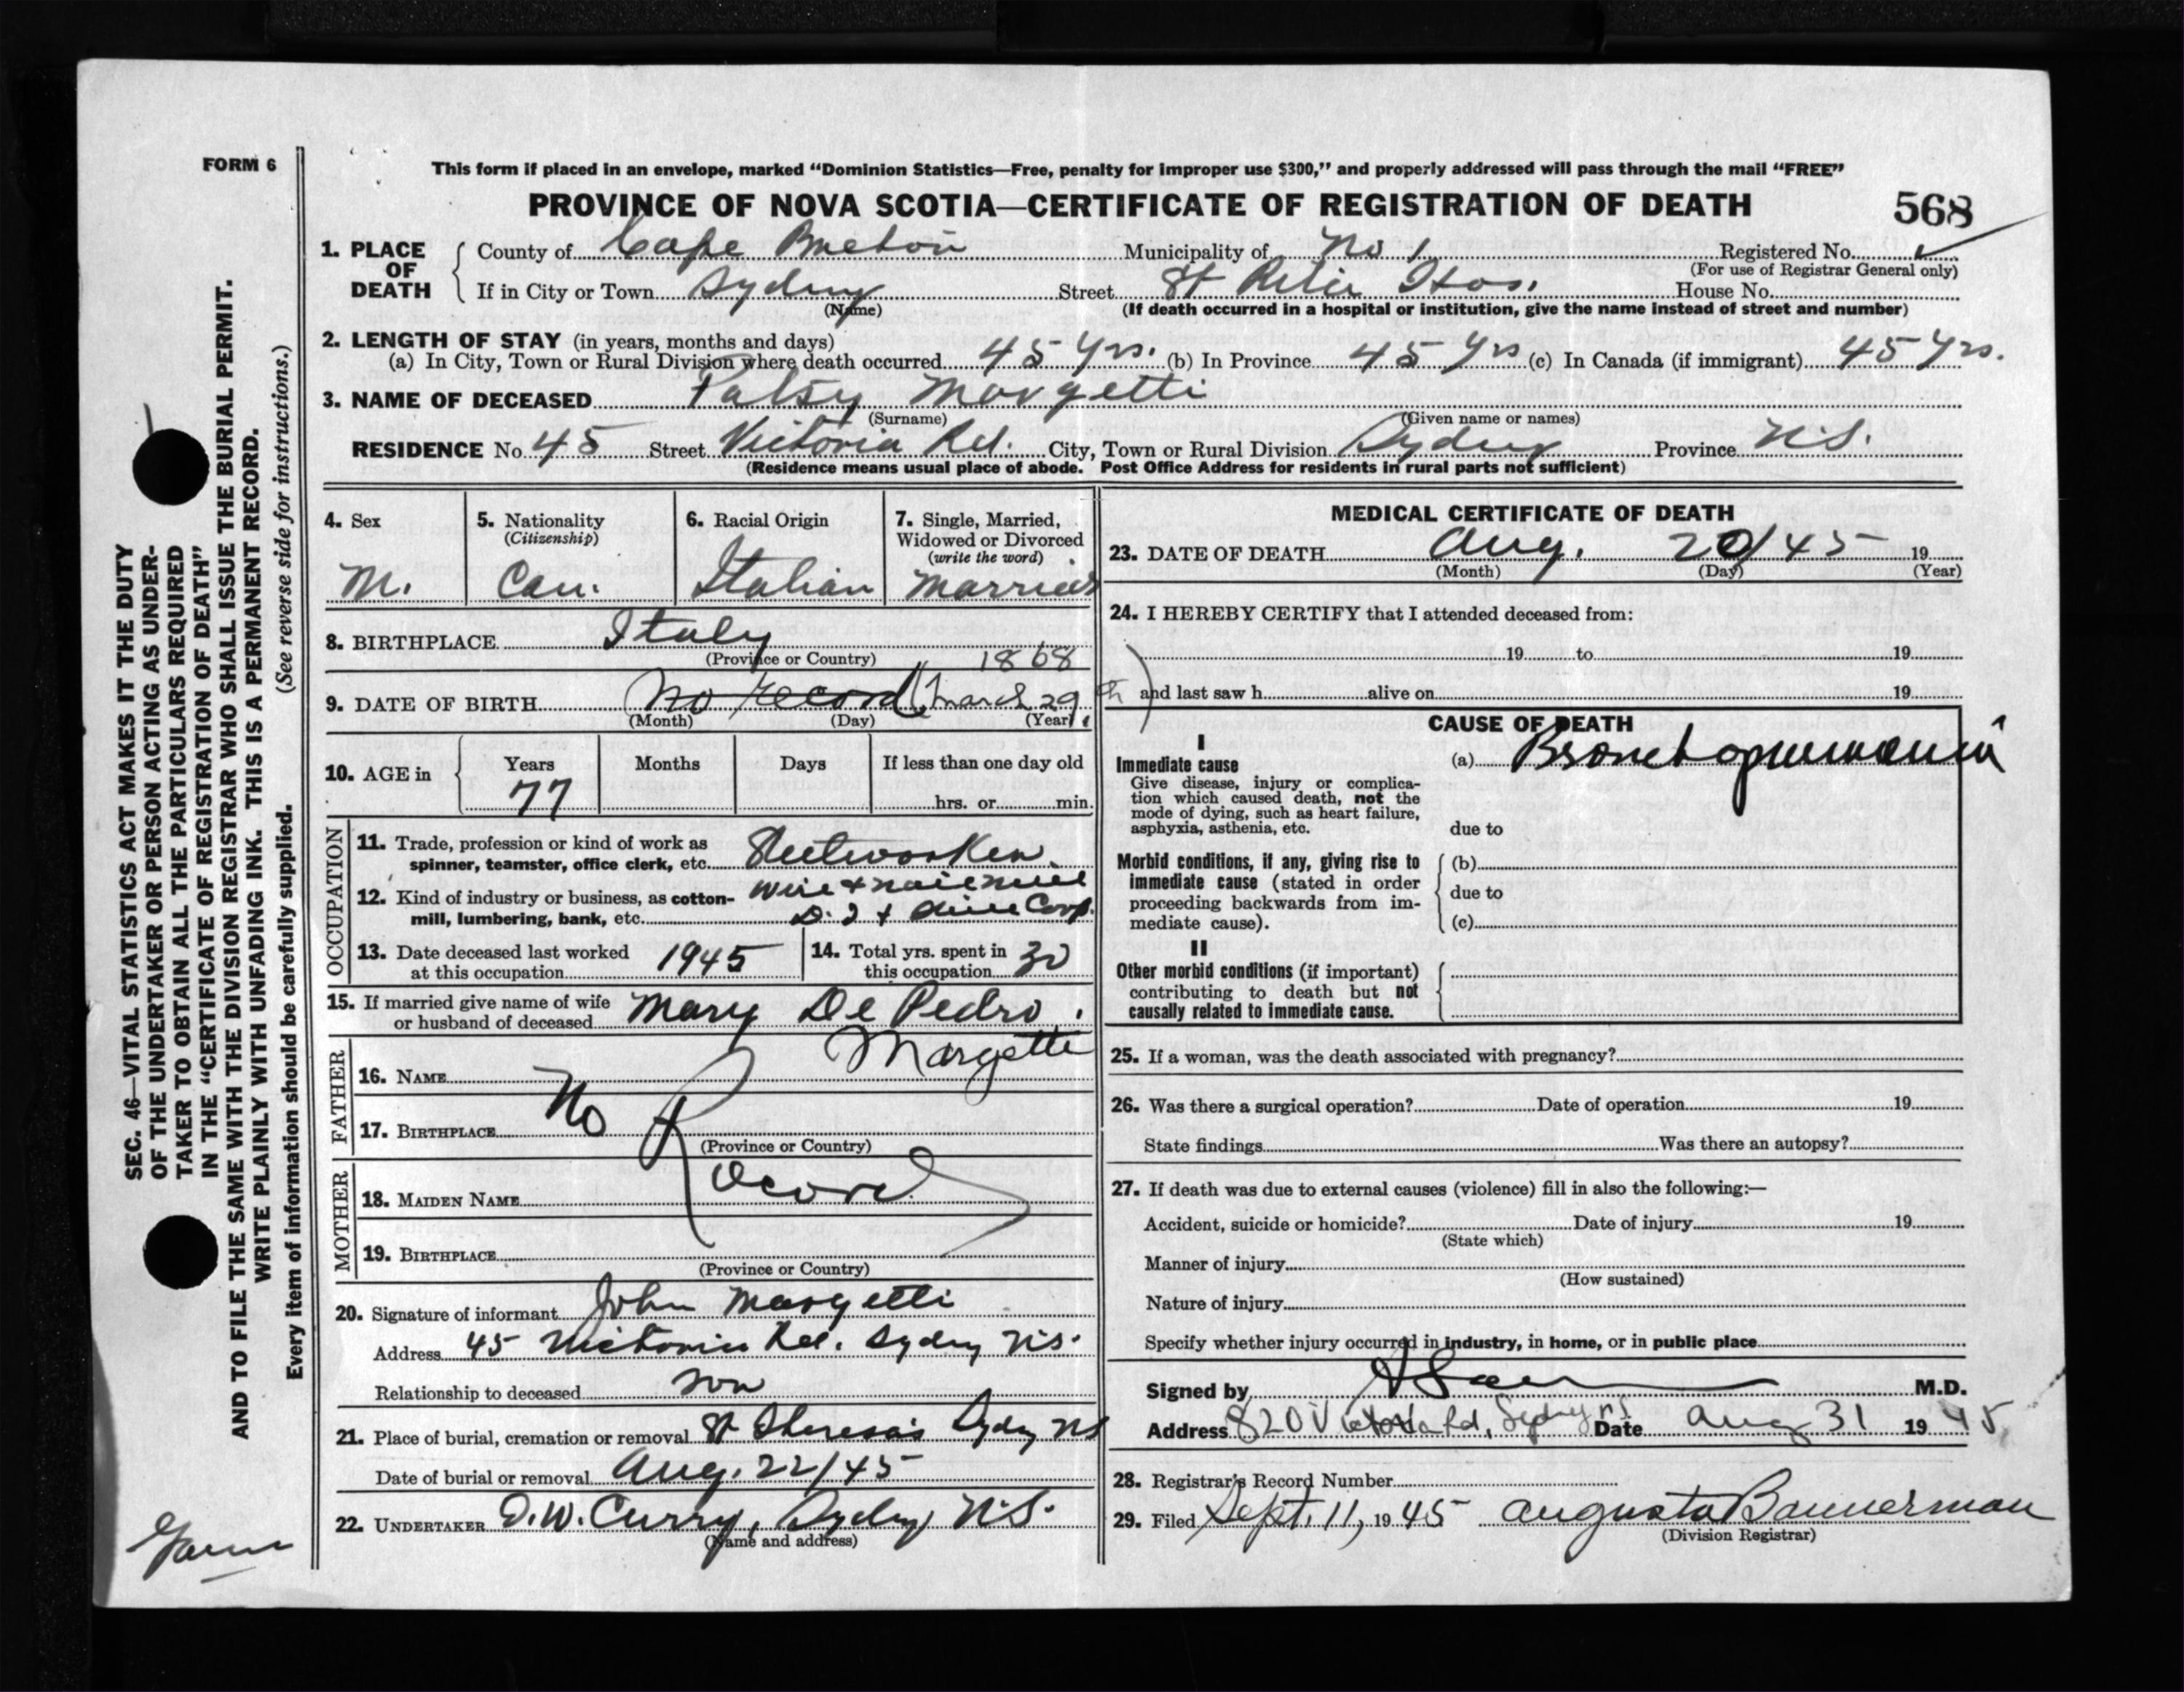 FORM 6
This form if placed in an envelope, marked “Dominion Statistics—Free, penalty for improper use $300,” and properly addressed will pass through the mail “FREE”
PROVINCE OF NOVA SCOTIA—CERTIFICATE OF REGISTRATION OF DEATH
568
1. PLACE OF DEATH
County of Cape Breton Municipality of No 1 Registered No.
(For use of Registrar General only)
If in City or Town Sydney Street St Hos. House No.
(Name)
(If death occurred in a hospital or institution, give the name instead of street and number)
2. LENGTH OF STAY (in years, months and days)
(a) In City, Town or Rural Division where death occurred 45 yrs. (b) In Province 45 yrs (c) In Canada (if immigrant) 45 yrs.
3. NAME OF DECEASED Patsy Margetti
(Surname) (Given name or names)
RESIDENCE No. 45 Street Victoria Rd. City, Town or Rural Division Sydney Province N.S.
(Residence means usual place of abode. Post Office Address for residents in rural parts not sufficient)
4. Sex
M.
5. Nationality
(Citizenship)
Can.
6. Racial Origin
Italian
7. Single, Married,
Widowed or Divorced
(write the word)
Married
8. BIRTHPLACE Italy
(Province or Country)
1868
9. DATE OF BIRTH No record (March 29th)
(Month) (Day) (Year)
10. AGE in
Years Months Days If less than one day old
77 hrs. or min.
OCCUPATION
11. Trade, profession or kind of work as
spinner, teamster, office clerk, etc. Steelworker.
12. Kind of industry or business, as cotton-
mill, lumbering, bank, etc.
Wire & nail mill
Corp.
13. Date deceased last worked
at this occupation 1945
14. Total yrs. spent in
this occupation 30
15. If married give name of wife
or husband of deceased Mary De Pedro.
Margetti
FATHER
16. NAME
17. BIRTHPLACE
(Province or Country)
No Record
MOTHER
18. MAIDEN NAME
19. BIRTHPLACE
(Province or Country)
20. Signature of informant John Margetti
Address 45 Victoria Rd. Sydney N.S.
Relationship to deceased son
21. Place of burial, cremation or removal St Theresa's Sydney NS
Date of burial or removal Aug. 22/45
22. UNDERTAKER D.W. Curry, Sydney, N.S.
(Name and address)
MEDICAL CERTIFICATE OF DEATH
23. DATE OF DEATH Aug. 20/45 19
(Month) (Day) (Year)
24. I HEREBY CERTIFY that I attended deceased from:
19 to 19
and last saw h alive on 19
CAUSE OF DEATH
I
Immediate cause
Give disease, injury or complica-
tion which caused death, not the
mode of dying, such as heart failure,
asphyxia, asthenia, etc.
(a) Bronchopneumonia
due to
Morbid conditions, if any, giving rise to
immediate cause (stated in order
proceeding backwards from im-
mediate cause).
(b)
due to
(c)
II
Other morbid conditions (if important)
contributing to death but not
causally related to immediate cause.
25. If a woman, was the death associated with pregnancy?
26. Was there a surgical operation? Date of operation 19
State findings Was there an autopsy?
27. If death was due to external causes (violence) fill in also the following:—
Accident, suicide or homicide? Date of injury 19
(State which)
Manner of injury
(How sustained)
Nature of injury
Specify whether injury occurred in industry, in home, or in public place
Signed by M.D.
Address 820 Victoria Rd, Sydney NS Date Aug 31 1945
28. Registrar's Record Number
29. Filed Sept. 11, 1945 Augusta Bannerman
(Division Registrar)
SEC. 46—VITAL STATISTICS ACT MAKES IT THE DUTY
OF THE UNDERTAKER OR PERSON ACTING AS UNDER-
TAKER TO OBTAIN ALL THE PARTICULARS REQUIRED
IN THE “CERTIFICATE OF REGISTRATION OF DEATH”
AND TO FILE THE SAME WITH THE DIVISION REGISTRAR WHO SHALL ISSUE THE BURIAL PERMIT.
WRITE PLAINLY WITH UNFADING INK. THIS IS A PERMANENT RECORD.
(See reverse side for instructions.)
Every item of information should be carefully supplied.